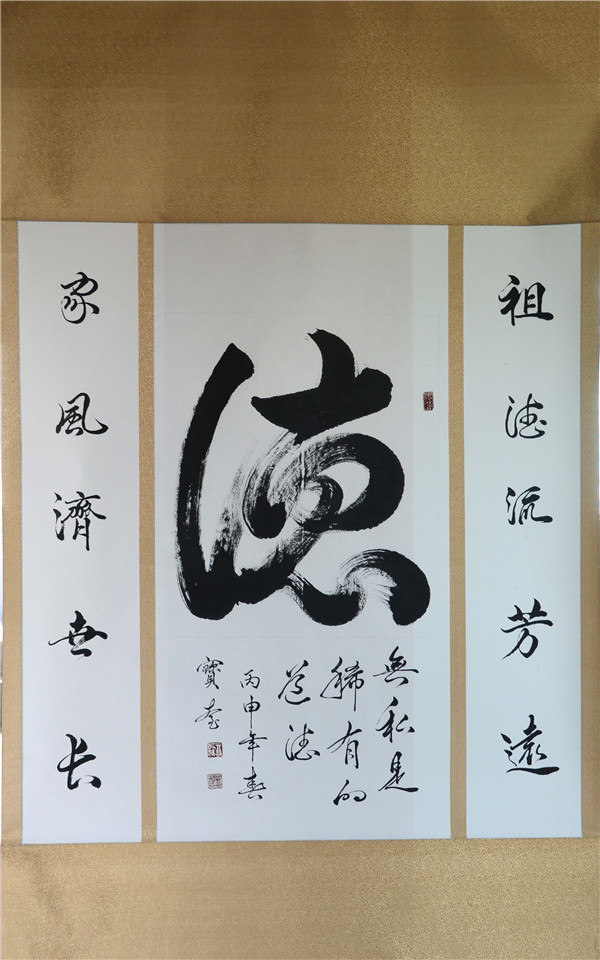 祖德流芳遠
德
無私是
稀有的
道德
丙申年春
寶奎
家風濟世长